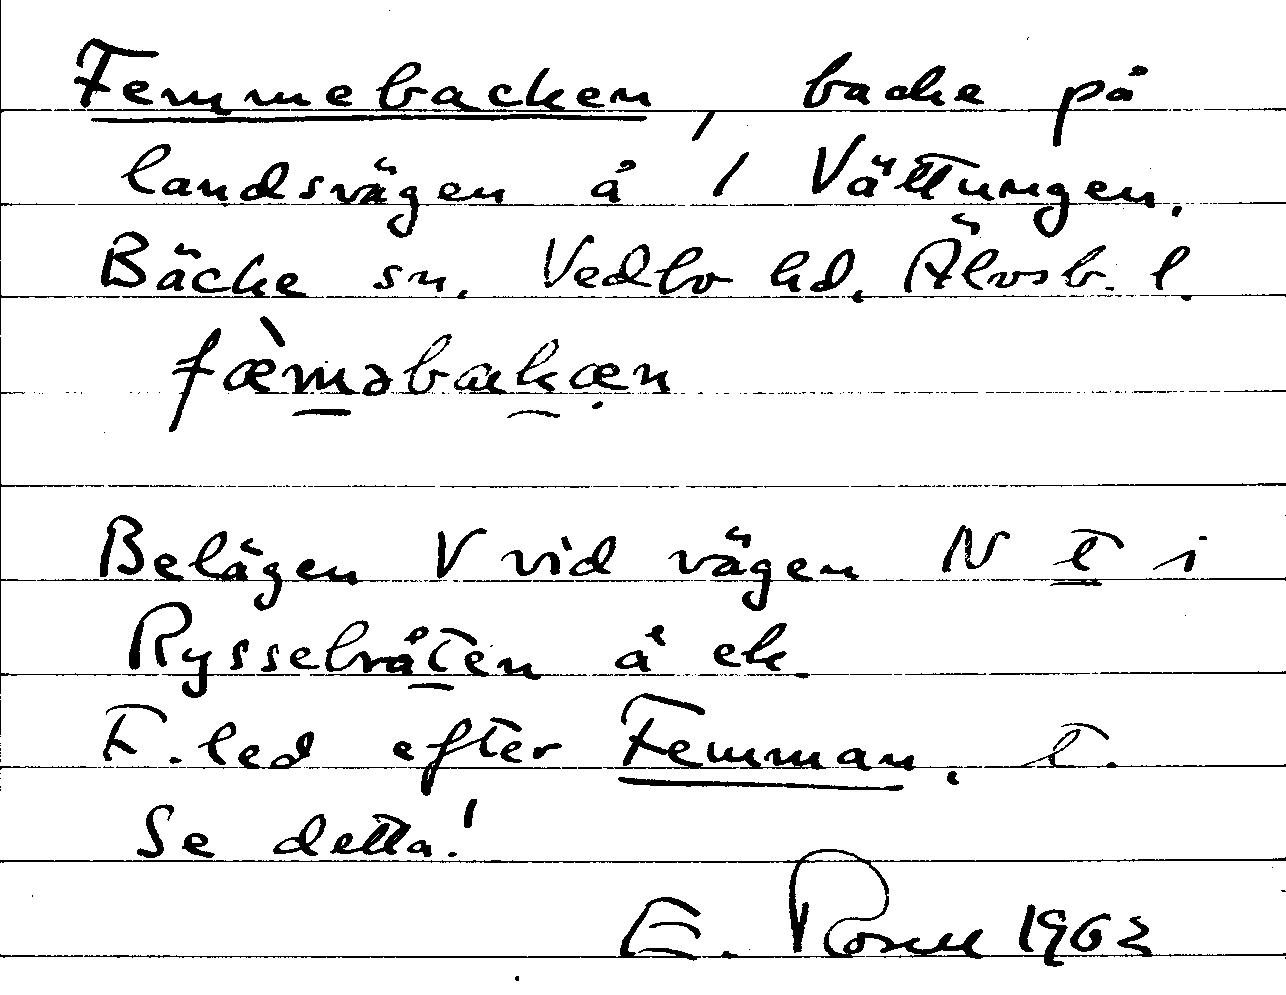 Femmebacken, backe på
landsvägen å 1 Vättungen.
Bäcke sn. Vedbo hd. Älvsb. l.
fæ̀məbakæn
Belägen V vid vägen N t i
Rysselvåten å ek.
F.led efter Femman. t.
Se detta!
E. Rosell 1963